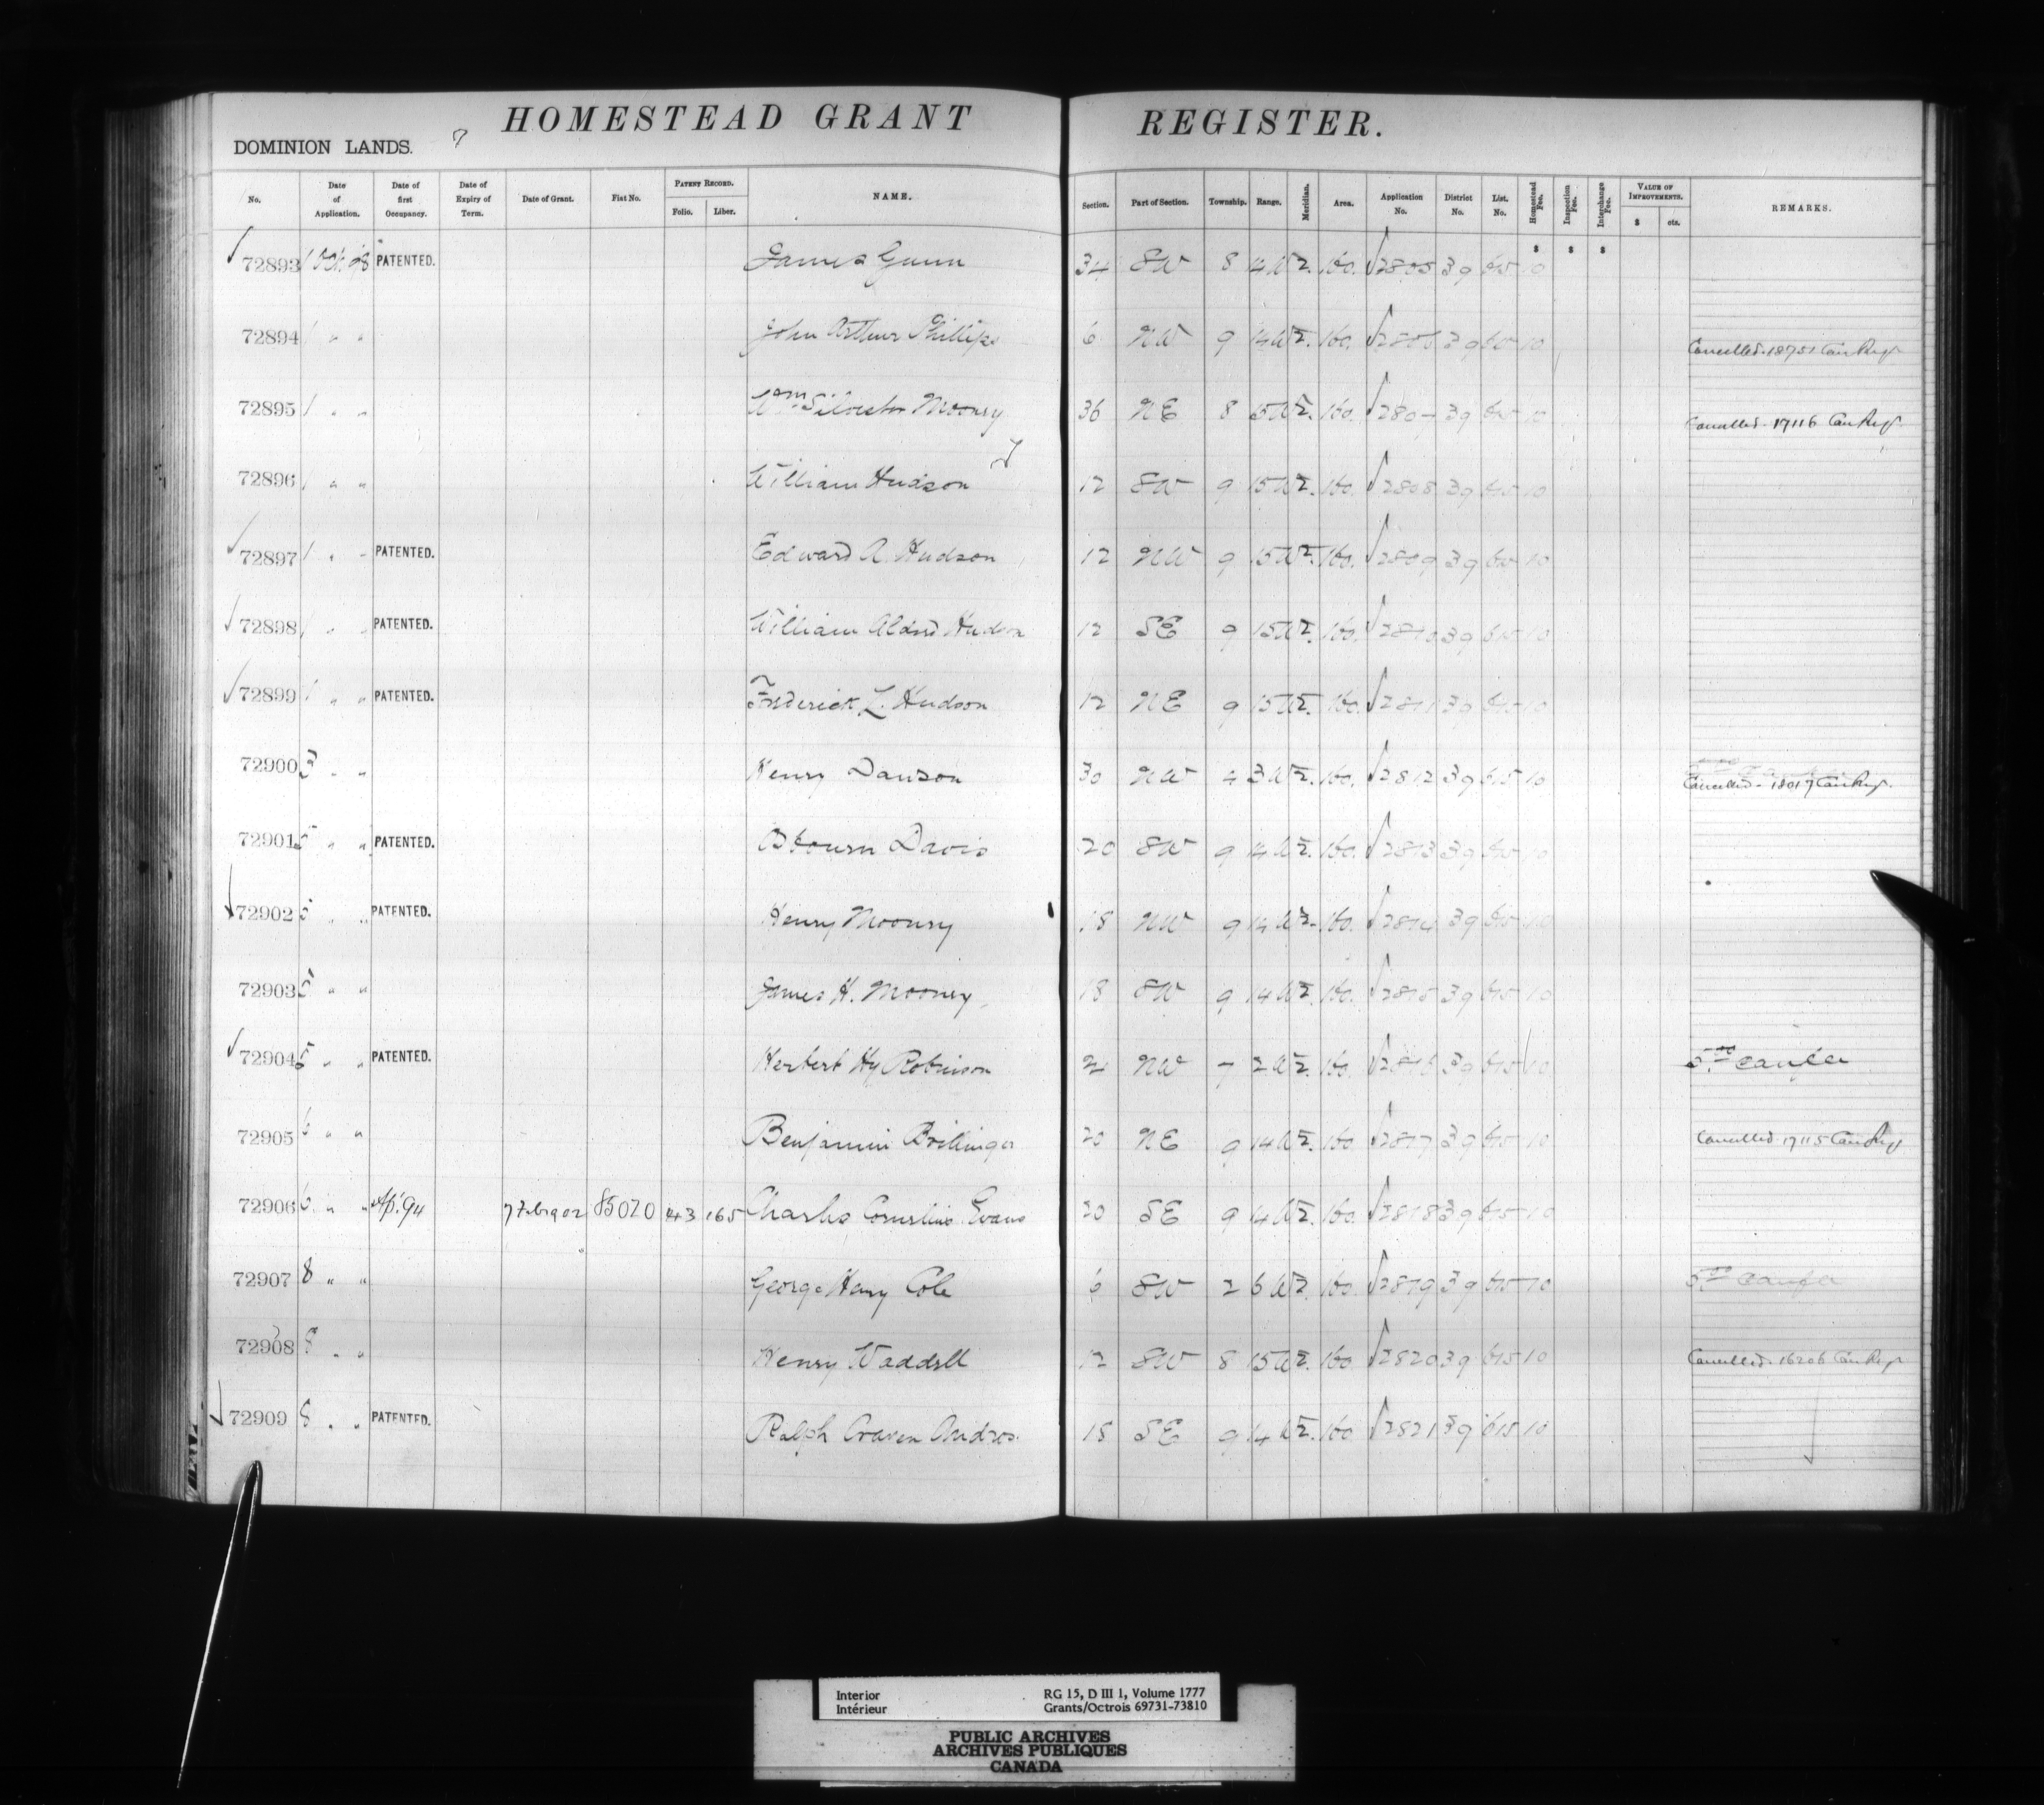 HOMESTEAD GRANT REGISTER.
DOMINION LANDS.
No. Date of Application. Date of first Occupancy. Date of Expiry of Term. Date of Grant. Fiat No. PATENT RECORD. Folio. Liber. NAME. Section. Part of Section. Township. Range. Meridian. Area. Application No. District No. List. No. Homestead Fee. Inspection Fee. Interchange Fee. VALUE OF IMPROVEMENTS. $ cts. REMARKS.
$ $ $
72893 1 Oct. PATENTED. James Gunn 34 SW 8 14 W 2. 160. 2805 39 615 10
72894 1 " " John Arthur Phillips 6 NW 9 14 W 2. 160. 2806 39 615 10 Cancelled. 18751 Can Regr
72895 1 " " Wm Silvester Mooney 36 NE 8 15 W 2. 160. 2807 39 615 10 Cancelled. 17116 Can Regr
72896 1 " " William Hudson 12 SW 9 15 W 2. 160. 2808 39 615 10
72897 1 " " PATENTED. Edward A. Hudson 12 NW 9 15 W 2. 160. 2809 39 615 10
72898 1 " " PATENTED. William Hudson 12 SE 9 15 W 2. 160. 2810 39 615 10
72899 1 " " PATENTED. Frederick L. Hudson 12 NE 9 15 W 2. 160. 2811 39 615 10
72900 3 " " Henry Dawson 30 NW 4 3 W 2. 160. 2812 39 615 10 Cancelled - 18017 Can Regr.
72901 5 " " PATENTED. Davis 20 SW 9 14 W 2. 160. 2813 39 615 10
72902 5 " " PATENTED. Henry Mooney 18 NW 9 14 W 2. 160. 2814 39 615 10
72903 5 " " James H. Mooney 18 SW 9 14 W 2. 160. 2815 39 615 10
72904 5 " " PATENTED. Herbert Hy Robinson NW 7 2 W 2. 160. 2816 39 615 10
72905 6 " " Benjamin Brillinger 20 NE 9 14 W 2. 160 2817 39 615 10 Cancelled. 17115 Can Regr
72906 6 " " Ap. '94 7 Feb 1902 85020 43 165 Charles Cornelius Evans 20 SE 9 14 W 2. 160. 2818 39 615 10
72907 8 " " George Henry Cole 6 SW 2 6 W 2. 160. 2819 39 615 10
72908 8 " " Henry Waddell 12 SW 8 15 W 2. 160 2820 39 615 10 Cancelled. 16206 Can Regr
72909 8 " " PATENTED. Ralph Craven Andros. 18 SE 9 14 W 2. 160 2821 39 615 10
Interior RG 15, D III 1, Volume 1777
Intérieur Grants/Octrois 69731-73810
PUBLIC ARCHIVES
ARCHIVES PUBLIQUES
CANADA